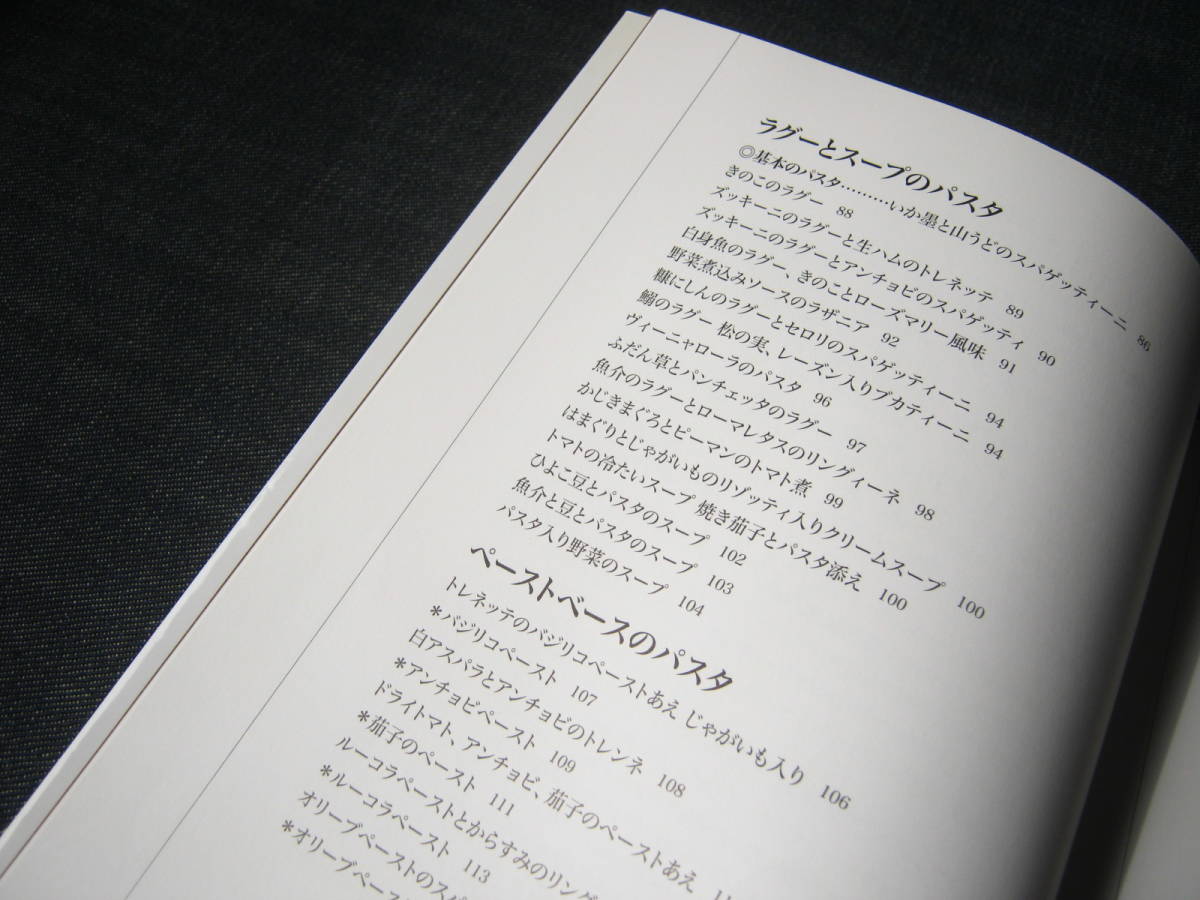 ラグーとスープのパスタ
◎基本のパスタ………いか墨と山うどのスパゲッティーニ 86
きのこのラグー 88
ズッキーニのラグーと生ハムのトレネッテ 89
ズッキーニのラグーとアンチョビのスパゲッティ 90
白身魚のラグー、きのことローズマリー風味 91
野菜煮込みソースのラザニア 92
糠にしんのラグーとセロリのスパゲッティーニ 94
鰯のラグー 松の実、レーズン入りブカティーニ 94
ヴィーニャローラのパスタ 96
ふだん草とパンチェッタのラグー 97
魚介のラグーとローマレタスのリングィーネ 98
かじきまぐろとピーマンのトマト煮 99
はまぐりとじゃがいものリゾッティ入りクリームスープ 100
トマトの冷たいスープ 焼き茄子とパスタ添え 100
ひよこ豆とパスタのスープ 102
魚介と豆とパスタのスープ 103
パスタ入り野菜のスープ 104
ペーストベースのパスタ
トレネッテのバジリコペーストあえ じゃがいも入り 106
*バジリコペースト 107
白アスパラとアンチョビのトレンネ 108
*アンチョビペースト 109
ドライトマト、アンチョビ、茄子のペーストあえ
*茄子のペースト 111
ルーコラペーストとからすみのリング
*ルーコラペースト 113
オリーブペーストのスパ
*オリーブペース